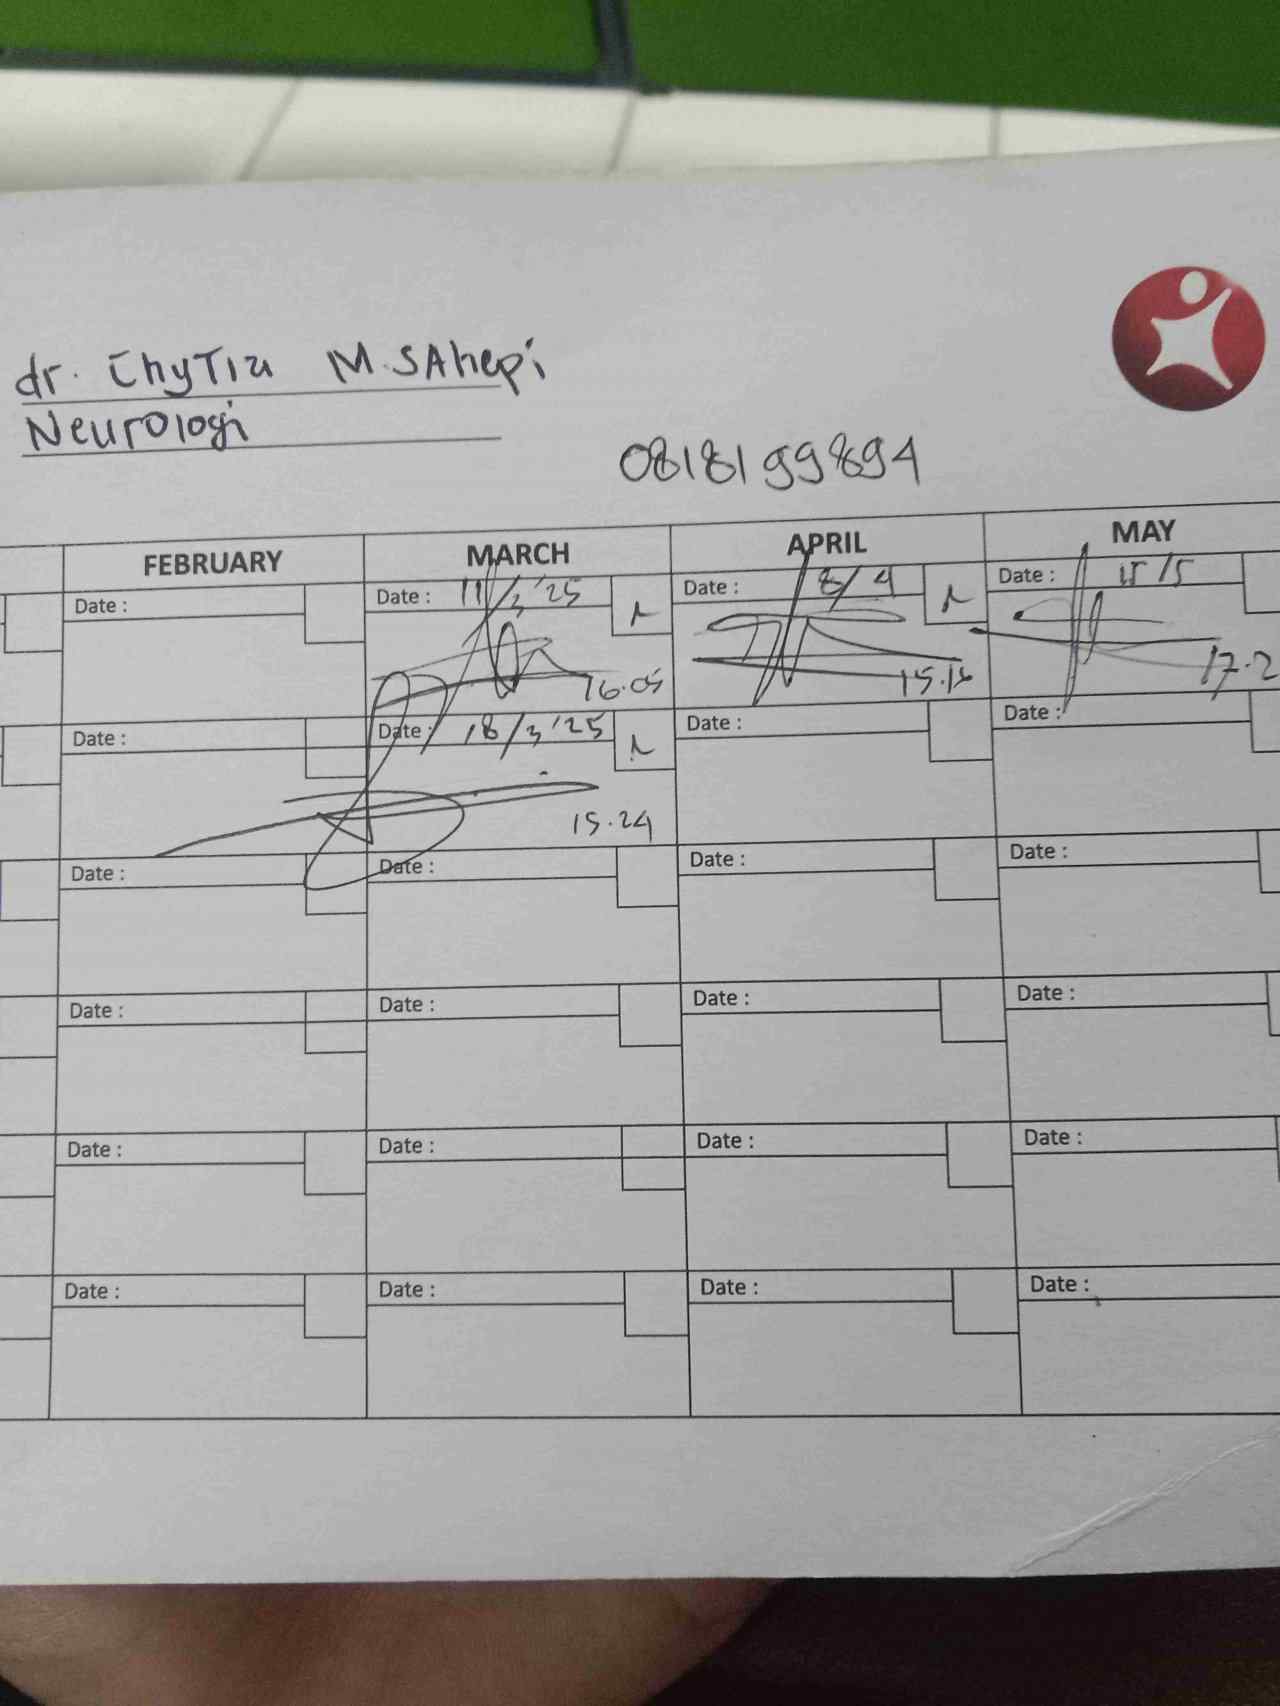 dr. ChyTia M. SAhepi
Neurologi
0818199894
FEBRUARY MARCH APRIL MAY
Date : Date : 11/3 '25 Date : 8/4 Date : 15/5
16.05 15.15 17.2
Date : Date : 18/3 '25 Date : Date :
15.24
Date : Date : Date : Date :
Date : Date : Date : Date :
Date : Date : Date : Date :
Date : Date : Date : Date :